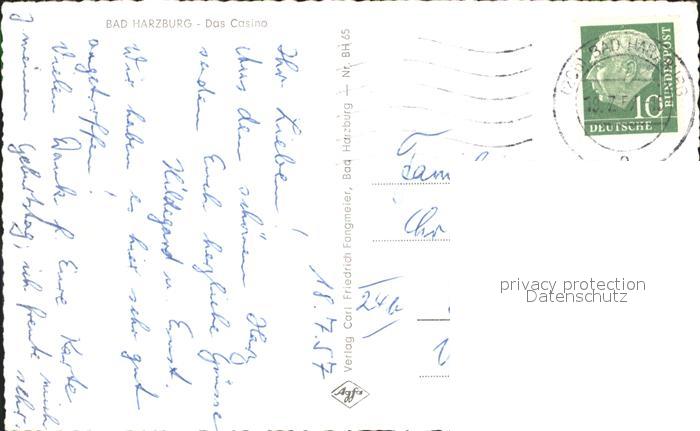 BAD HARZBURG - Das Casino
18.7.57
Ihr Lieben!
Aus dem schönen Harz
senden Euch herzliche Grüsse
Hildegard u. Ernst.
Wir haben es hier sehr gut
angetroffen!
Vielen Dank f. Eure Karte
z meinem Geburtstag, ich freute mich sehr.
Verlag Carl Friedrich Fangmeier, Bad Harzburg — Nr. BH 65
Agfa
BAD HARZBURG
10
DEUTSCHE
BUNDESPOST
Fam
Chr
24b
privacy protection
Datenschutz